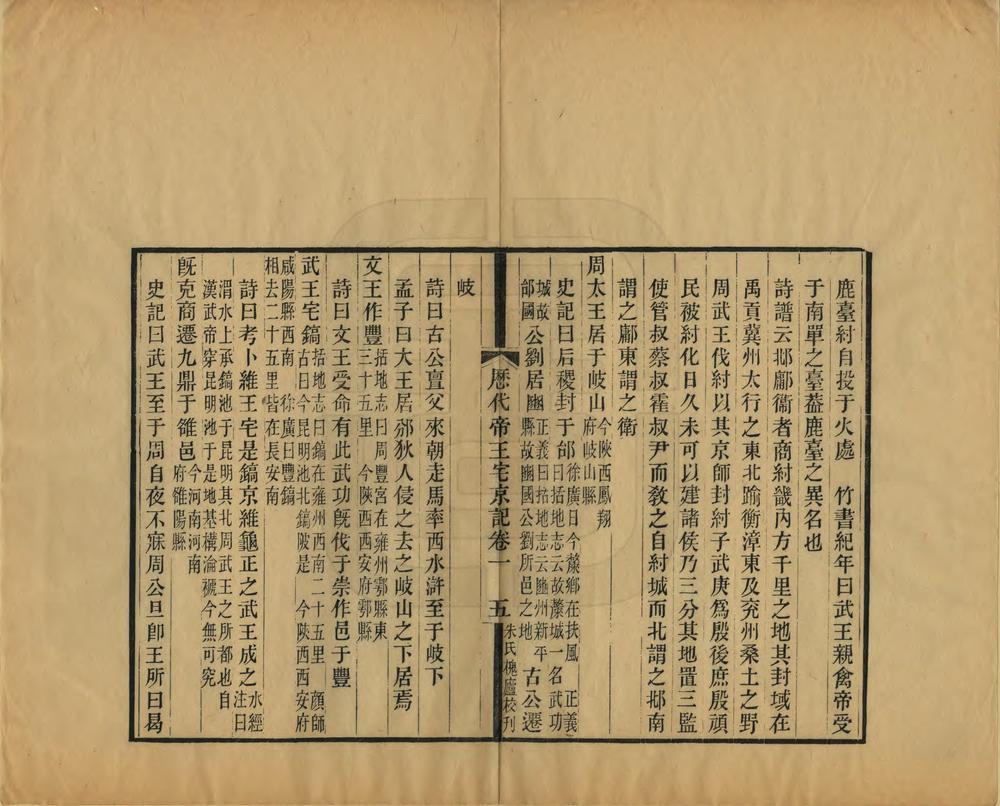 鹿臺紂自投于火處　竹書紀年曰武王親禽帝受
于南單之臺葢鹿臺之異名也
詩譜云邶鄘衞者商紂畿內方千里之地其封域在
禹貢冀州太行之東北踰衡漳東及兖州桑土之野
周武王伐紂以其京師封紂子武庚爲殷後庶殷頑
民被紂化日久未可以建諸侯乃三分其地置三監
使管叔蔡叔霍叔尹而敎之自紂城而北謂之邶南
謂之鄘東謂之衞
周太王居于岐山今陝西鳳翔府岐山縣
史記曰后稷封于邰徐廣曰今斄鄉在扶風　正義曰括地志云故斄城一名武功城故邰國公劉居豳正義曰括地志云豳州新平縣故豳國公劉所邑之地古公遷
岐
詩曰古公亶父來朝走馬率西水滸至于岐下
孟子曰大王居邠狄人侵之去之岐山之下居焉
文王作豐括地志曰周豐宮在雍州鄠縣東三十五里　今陝西西安府鄠縣
詩曰文王受命有此武功旣伐于崇作邑于豐
武王宅鎬括地志曰鎬在雍州西南二十五里　顔師古曰今昆明池北鎬陂是　今陝西西安府咸陽縣西南　徐廣曰豐鎬相去二十五里皆在長安南
詩曰考卜維王宅是鎬京維龜正之武王成之水經注曰渭水上承鎬池于昆明其北周武王之所都也自漢武帝穿昆明池于是地基構淪褫今無可究
旣克商遷九鼎于雒邑今河南河南府雒陽縣
史記曰武王至于周自夜不寐周公旦卽王所曰曷
歷代帝王宅京記卷一　五　朱氏槐廬校刊